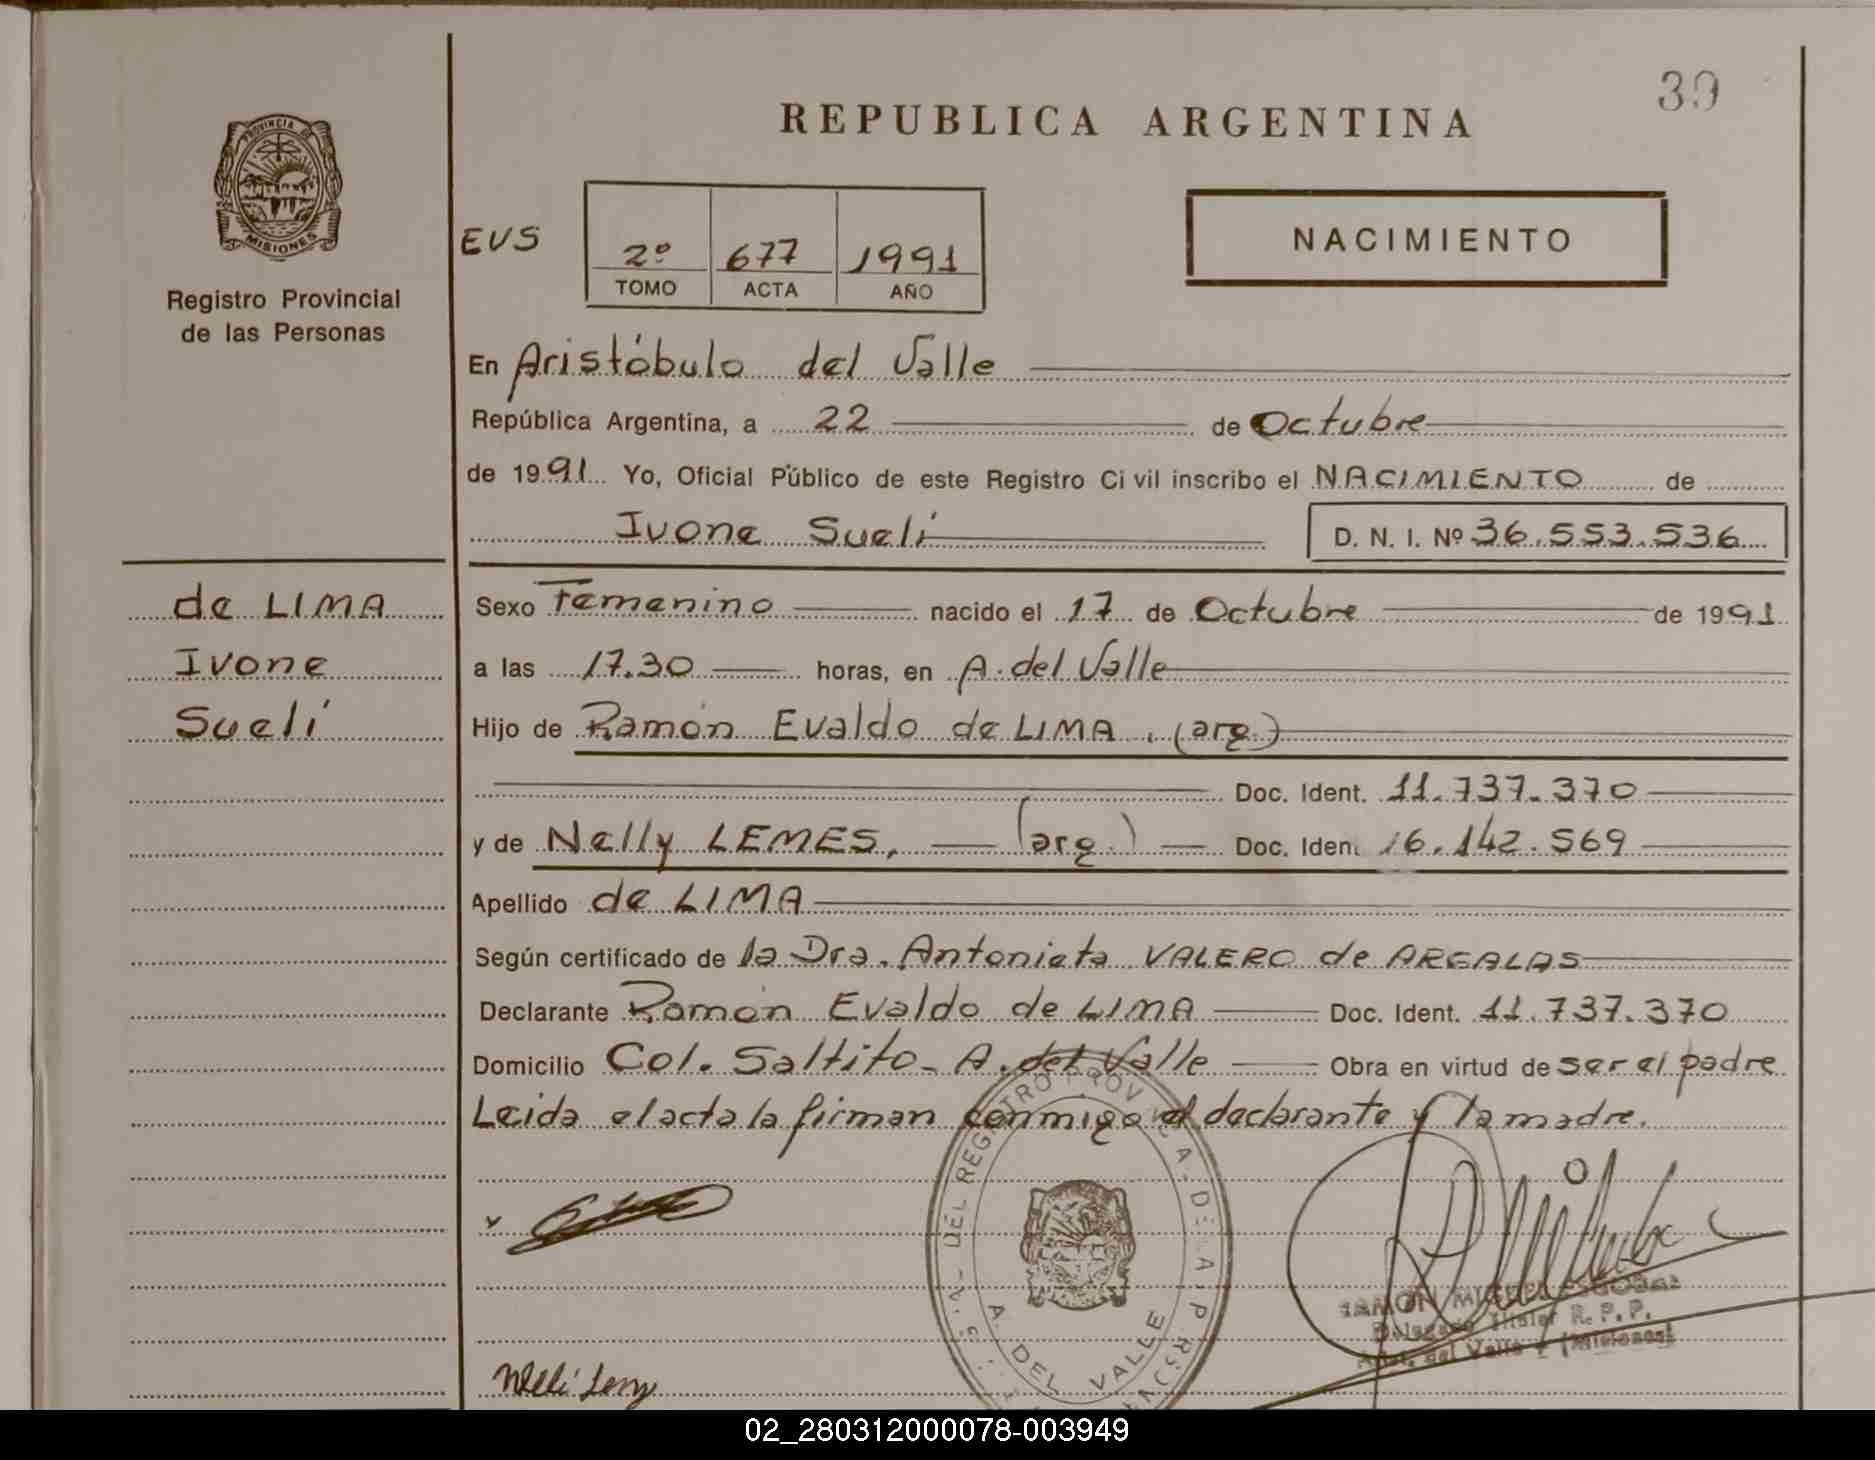 39
REPUBLICA ARGENTINA
PROVINCIA DE
MISIONES
Registro Provincial
de las Personas
EUS
2º 677 1991
TOMO ACTA AÑO
NACIMIENTO
En Aristóbulo del Valle
República Argentina, a 22 de Octubre
de 1991 Yo, Oficial Público de este Registro Civil inscribo el NACIMIENTO de
Ivone Suelí D. N. I. Nº 36.553.536
de LIMA
Ivone
Suelí
Sexo Femenino nacido el 17 de Octubre de 1991
a las 17.30 horas, en A. del Valle
Hijo de Ramón Evaldo de LIMA, (arg.)
Doc. Ident. 11.737.370
y de Nelly LEMES, (arg.) Doc. Iden. 16.142.569
Apellido de LIMA
Según certificado de la Dra. Antonieta VALERO de ARGALAS
Declarante Ramón Evaldo de LIMA Doc. Ident. 11.737.370
Domicilio Col. Saltito - A. del Valle Obra en virtud de ser el padre
Leida el acta la firman conmigo el declarante y la madre.
DEL REGISTRO PROVINCIAL DE LA P
A. DEL VALLE
RAMON MIGUEL ESCOBAR
Delegado Titular R. P. P.
Arist. del Valle - (Misiones)
02_280312000078-003949